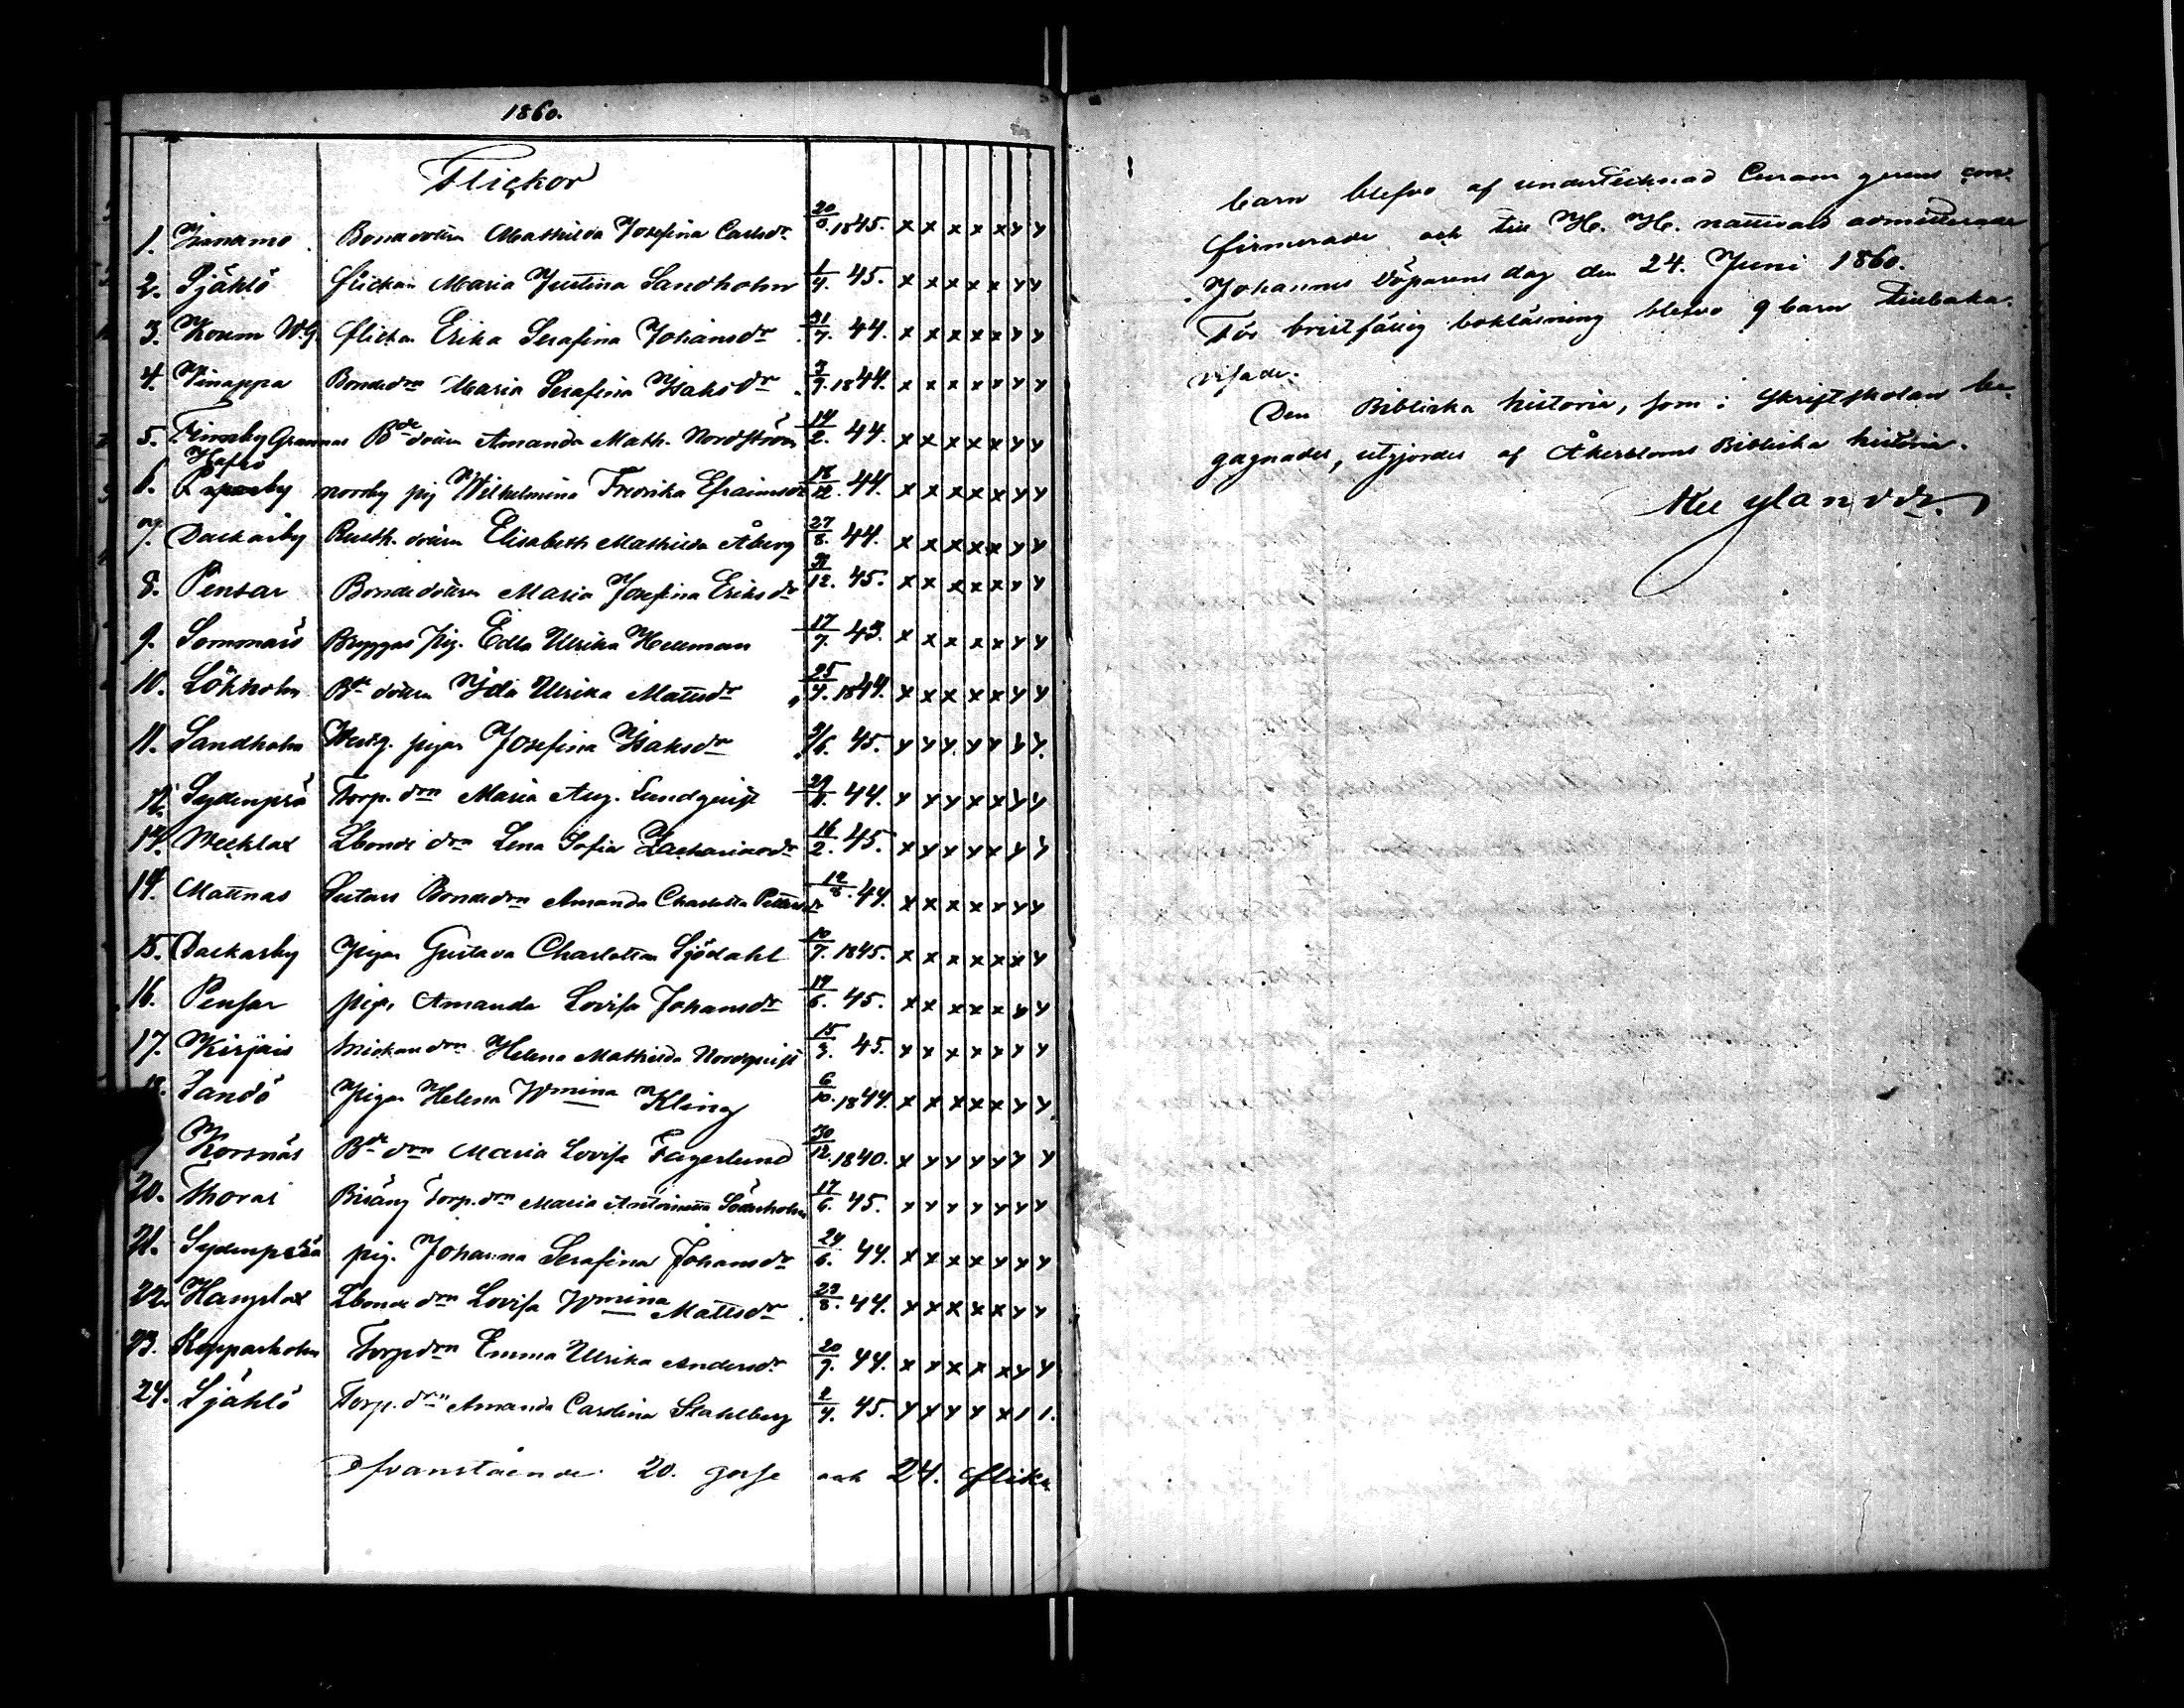 1860.
Flickor
1. Bondedottern Mathilda Josefina Carlsdr 20/9. 1845. x x x x x y y
2. Själö flickan Maria Justina Sandholm 1/4. 45. x x x x x y y
3. flickan Erika Serafina Johansdr 31/7. 44. x x x x x y y
4. Pinappa Bondedrn Maria Serafina Isaksdr 1844. x x x x x y y
5. Finnby Grannas Bde dottern Amanda Math. Nordström 14/2. 44. x x x x x y y
6. Hafsö norrby pig Wilhelmina Fredrika Efraimsdr 18/12. 44. x x x x x y y
7. Dackarby dottern Elisabeth Mathilda Åberg 27/8. 44. x x x x x y y
8. Pensar Bondedottern Maria Josefina Eriksdr 12. 45. x x x x x y y
9. Sommarö Bryggas pig. Edla Ulrika Hellman 17/7. 43. x x x x x y y
10. Lökholm Bde dottern Ida Ulrika Mattsdr 25/4. 1844. x x x x x y y
11. Sandholm pigan Josefina Isaksdr 9/6. 45. y y y y y y y
12. Sydenperä Torp. drn Maria Aug. Lundquist 44. y y y x x y y
14. Wecklax Lbonde drn Lena Sofia Zachariasdr 16/2. 45. x y y y x y y
14. Mattnas Bondedrn Amanda Charlotta Pettersdr 12/8. 44. x x x x x y y
15. Dackarby Pigan Gustava Charlotta Sjödahl 10/7. 1845. x x x x x x y
16. Pensar pigan Amanda Lovisa Johansdr 17/6. 45. x x x x x y y
17. Kirjais drn Helena Mathilda Nordquist 15/3. 45. x x x x x y y
18. Sandö Pigan Helena Wmina Kling 6/10. 1844. x x x x x y y
Korsnäs Bde drn Maria Lovisa Fagerlund 30/12. 1840. x y y y y y y
20. Thoras Torp. drn Maria Antoinetta Söderholm 17/6. 45. y y y y y y y
21. Sydenperä pig. Johanna Serafina Johansdr 24/6. 44. x x x x x y y
22. Hangslax Lbonde drn Lovisa Wmina Mattsdr 29/8. 44. y x x x x y y
23. Kopparholm Torpdrn Emma Ulrika Andersdr 20/9. 44. x x x x x y y
24. Själö Torp. drn Amanda Carolina Stahlberg 2/4. 45. y x y y x 1 1.
Ofvanstående 20. gosse och 24. flick
barn blefvo af undertecknad Curam gerens con-
firmerade och till H. H. nattvard admitterade
Johannes Döparens dag den 24. Juni 1860.
För bristfällig bokläsning blefvo 9 barn tillbaka
visade.
Den Bibliska historia, som i Skriftskolan be-
gagnades, utgjordes af Åkerbloms Bibliska historia.